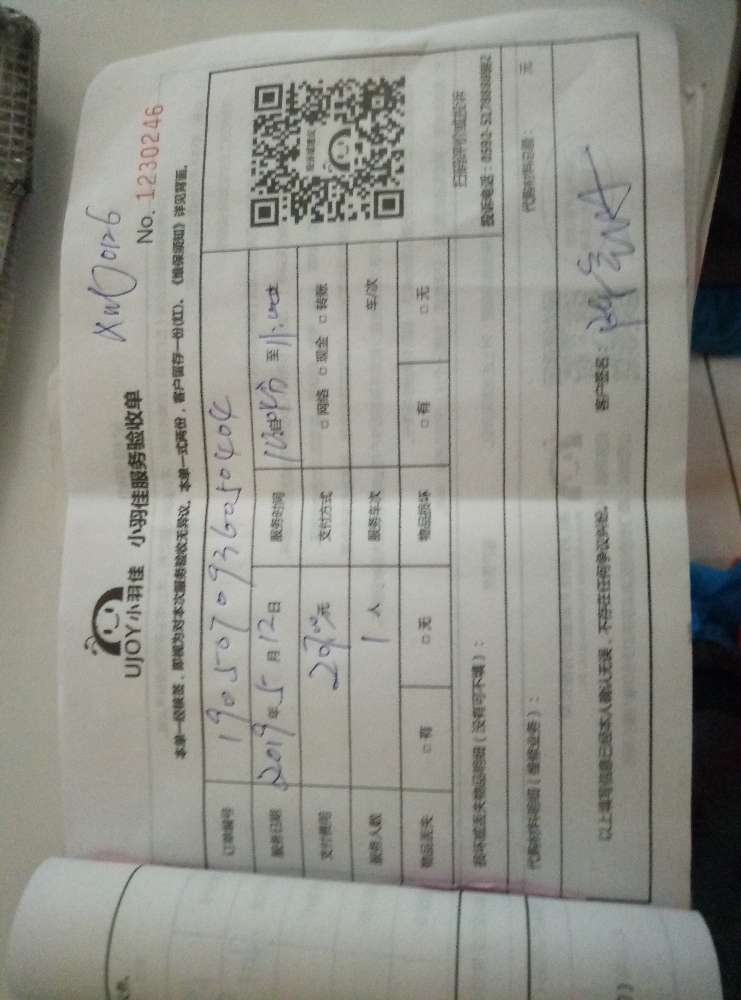 XMD0126
No. 1230246
UJOY小羽佳 小羽佳服务验收单
本单一经核签，即视为对本次服务验收无异议。本单一式两份，客户留存一份(红)。《维保须知》详见背面。
订单编号 1905070936050404
服务日期 2019年5月12日 服务时间 至
支付费用 元 支付方式 □ 网络 □ 现金 □ 转账
服务人数 1人 服务车次 车/次
物品丢失 □ 有 □ 无 物品损坏 □ 有 □ 无
损坏或丢失物品明细（没有可不填）：
投诉电话：0592-5178888882
代购材料明细（维修业务）： 代购材料总额： 元
以上填写信息已经本人确认无误，不存在任何争议纠纷。 客户签名：